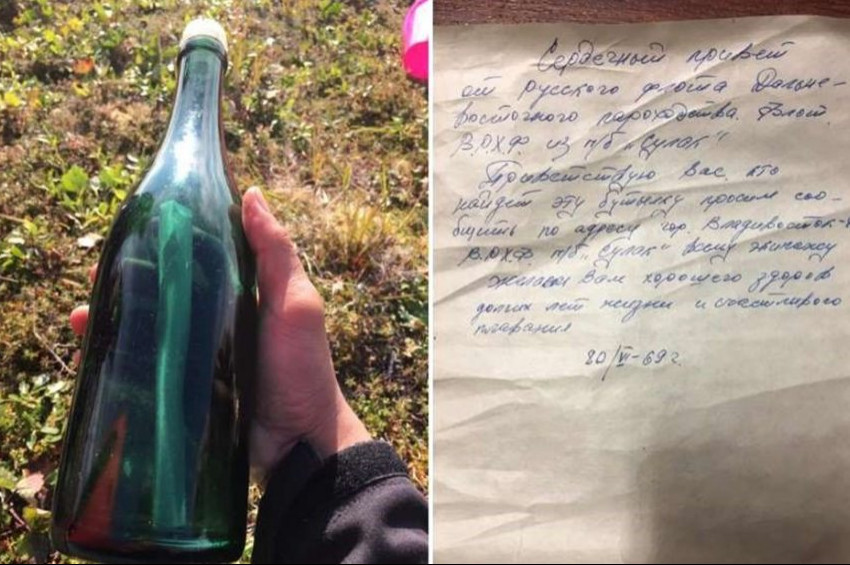 Сердечный привет
от русского флота Дальне-
восточного пароходства. Флот.
В.О.Х.Ф. из п/б „Сулак"
Приветствую Вас, кто
найдет эту бутылку просим соо-
бщить по адресу гор. Владивосток-
В.О.Х.Ф. п/б „Сулак" всему экипажу
желаем Вам хорошего здоров
долгих лет жизни и счастливого
плавания
20/VI-69г.